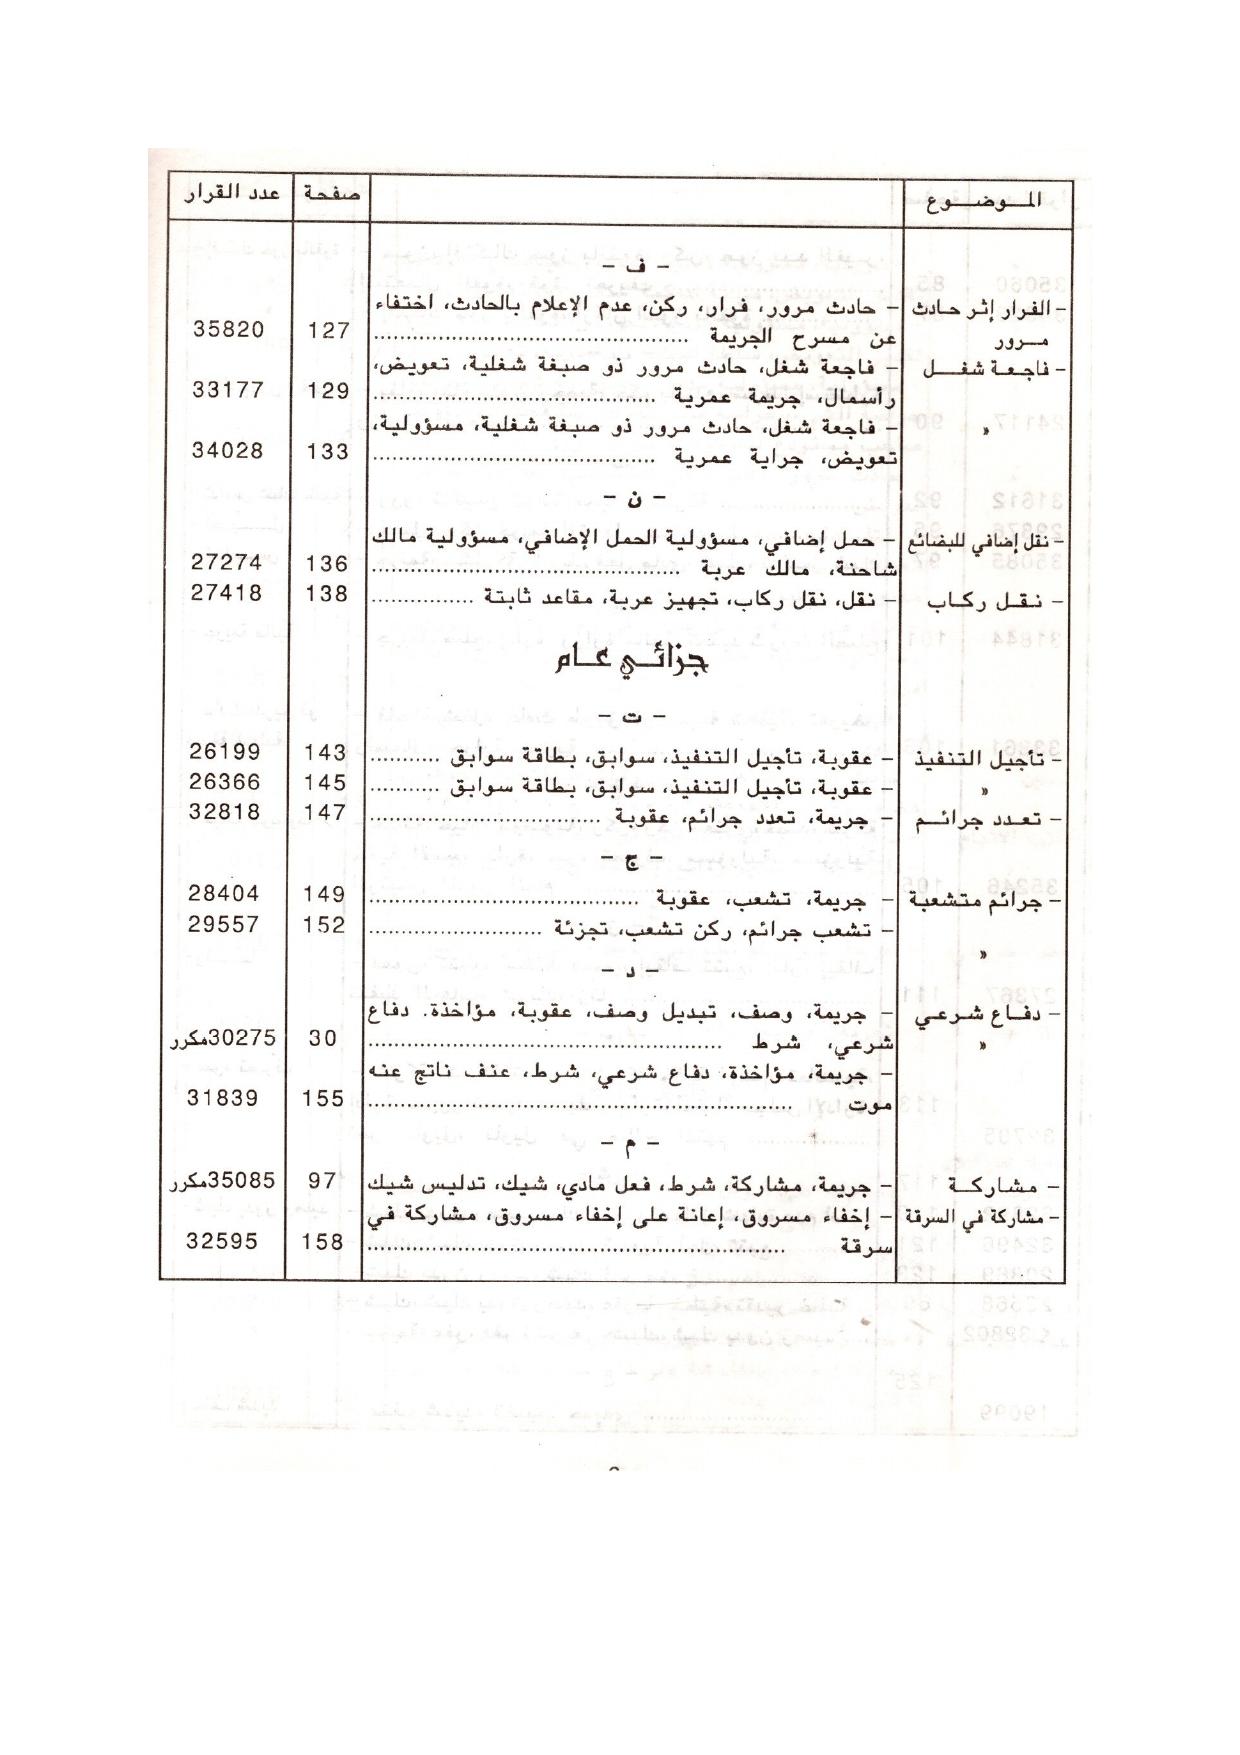 الموضوع صفحة عدد القرار
- ف -
- الفرار إثر حادث - حادث مرور، فرار، ركن، عدم الإعلام بالحادث، اختفاء
مرور عن مسرح الجريمة ................ 127 35820
- فاجعة شغل - فاجعة شغل، حادث مرور ذو صبغة شغلية، تعويض،
رأسمال، جريمة عمرية ................ 129 33177
« - فاجعة شغل، حادث مرور ذو صبغة شغلية، مسؤولية،
تعويض، جراية عمرية ................ 133 34028
- ن -
- نقل إضافي للبضائع - حمل إضافي، مسؤولية الحمل الإضافي، مسؤولية مالك
شاحنة، مالك عربة ................ 136 27274
- نقل ركاب - نقل، نقل ركاب، تجهيز عربة، مقاعد ثابتة ................ 138 27418
جزائي عام
- ت -
- تأجيل التنفيذ - عقوبة، تأجيل التنفيذ، سوابق، بطاقة سوابق ........... 143 26199
« - عقوبة، تأجيل التنفيذ، سوابق، بطاقة سوابق ........... 145 26366
- تعدد جرائم - جريمة، تعدد جرائم، عقوبة ................ 147 32818
- ج -
- جرائم متشعبة - جريمة، تشعب، عقوبة ................ 149 28404
« - تشعب جرائم، ركن تشعب، تجزئة ................ 152 29557
- د -
- دفاع شرعي - جريمة، وصف، تبديل وصف، عقوبة، مؤاخذة. دفاع
« شرعي، شرط ................ 30 30275مكرر
- جريمة، مؤاخذة، دفاع شرعي، شرط، عنف ناتج عنه
موت ................ 155 31839
- م -
- مشاركة - جريمة، مشاركة، شرط، فعل مادي، شيك، تدليس شيك 97 35085مكرر
- مشاركة في السرقة - إخفاء مسروق، إعانة على إخفاء مسروق، مشاركة في
سرقة ................ 158 32595